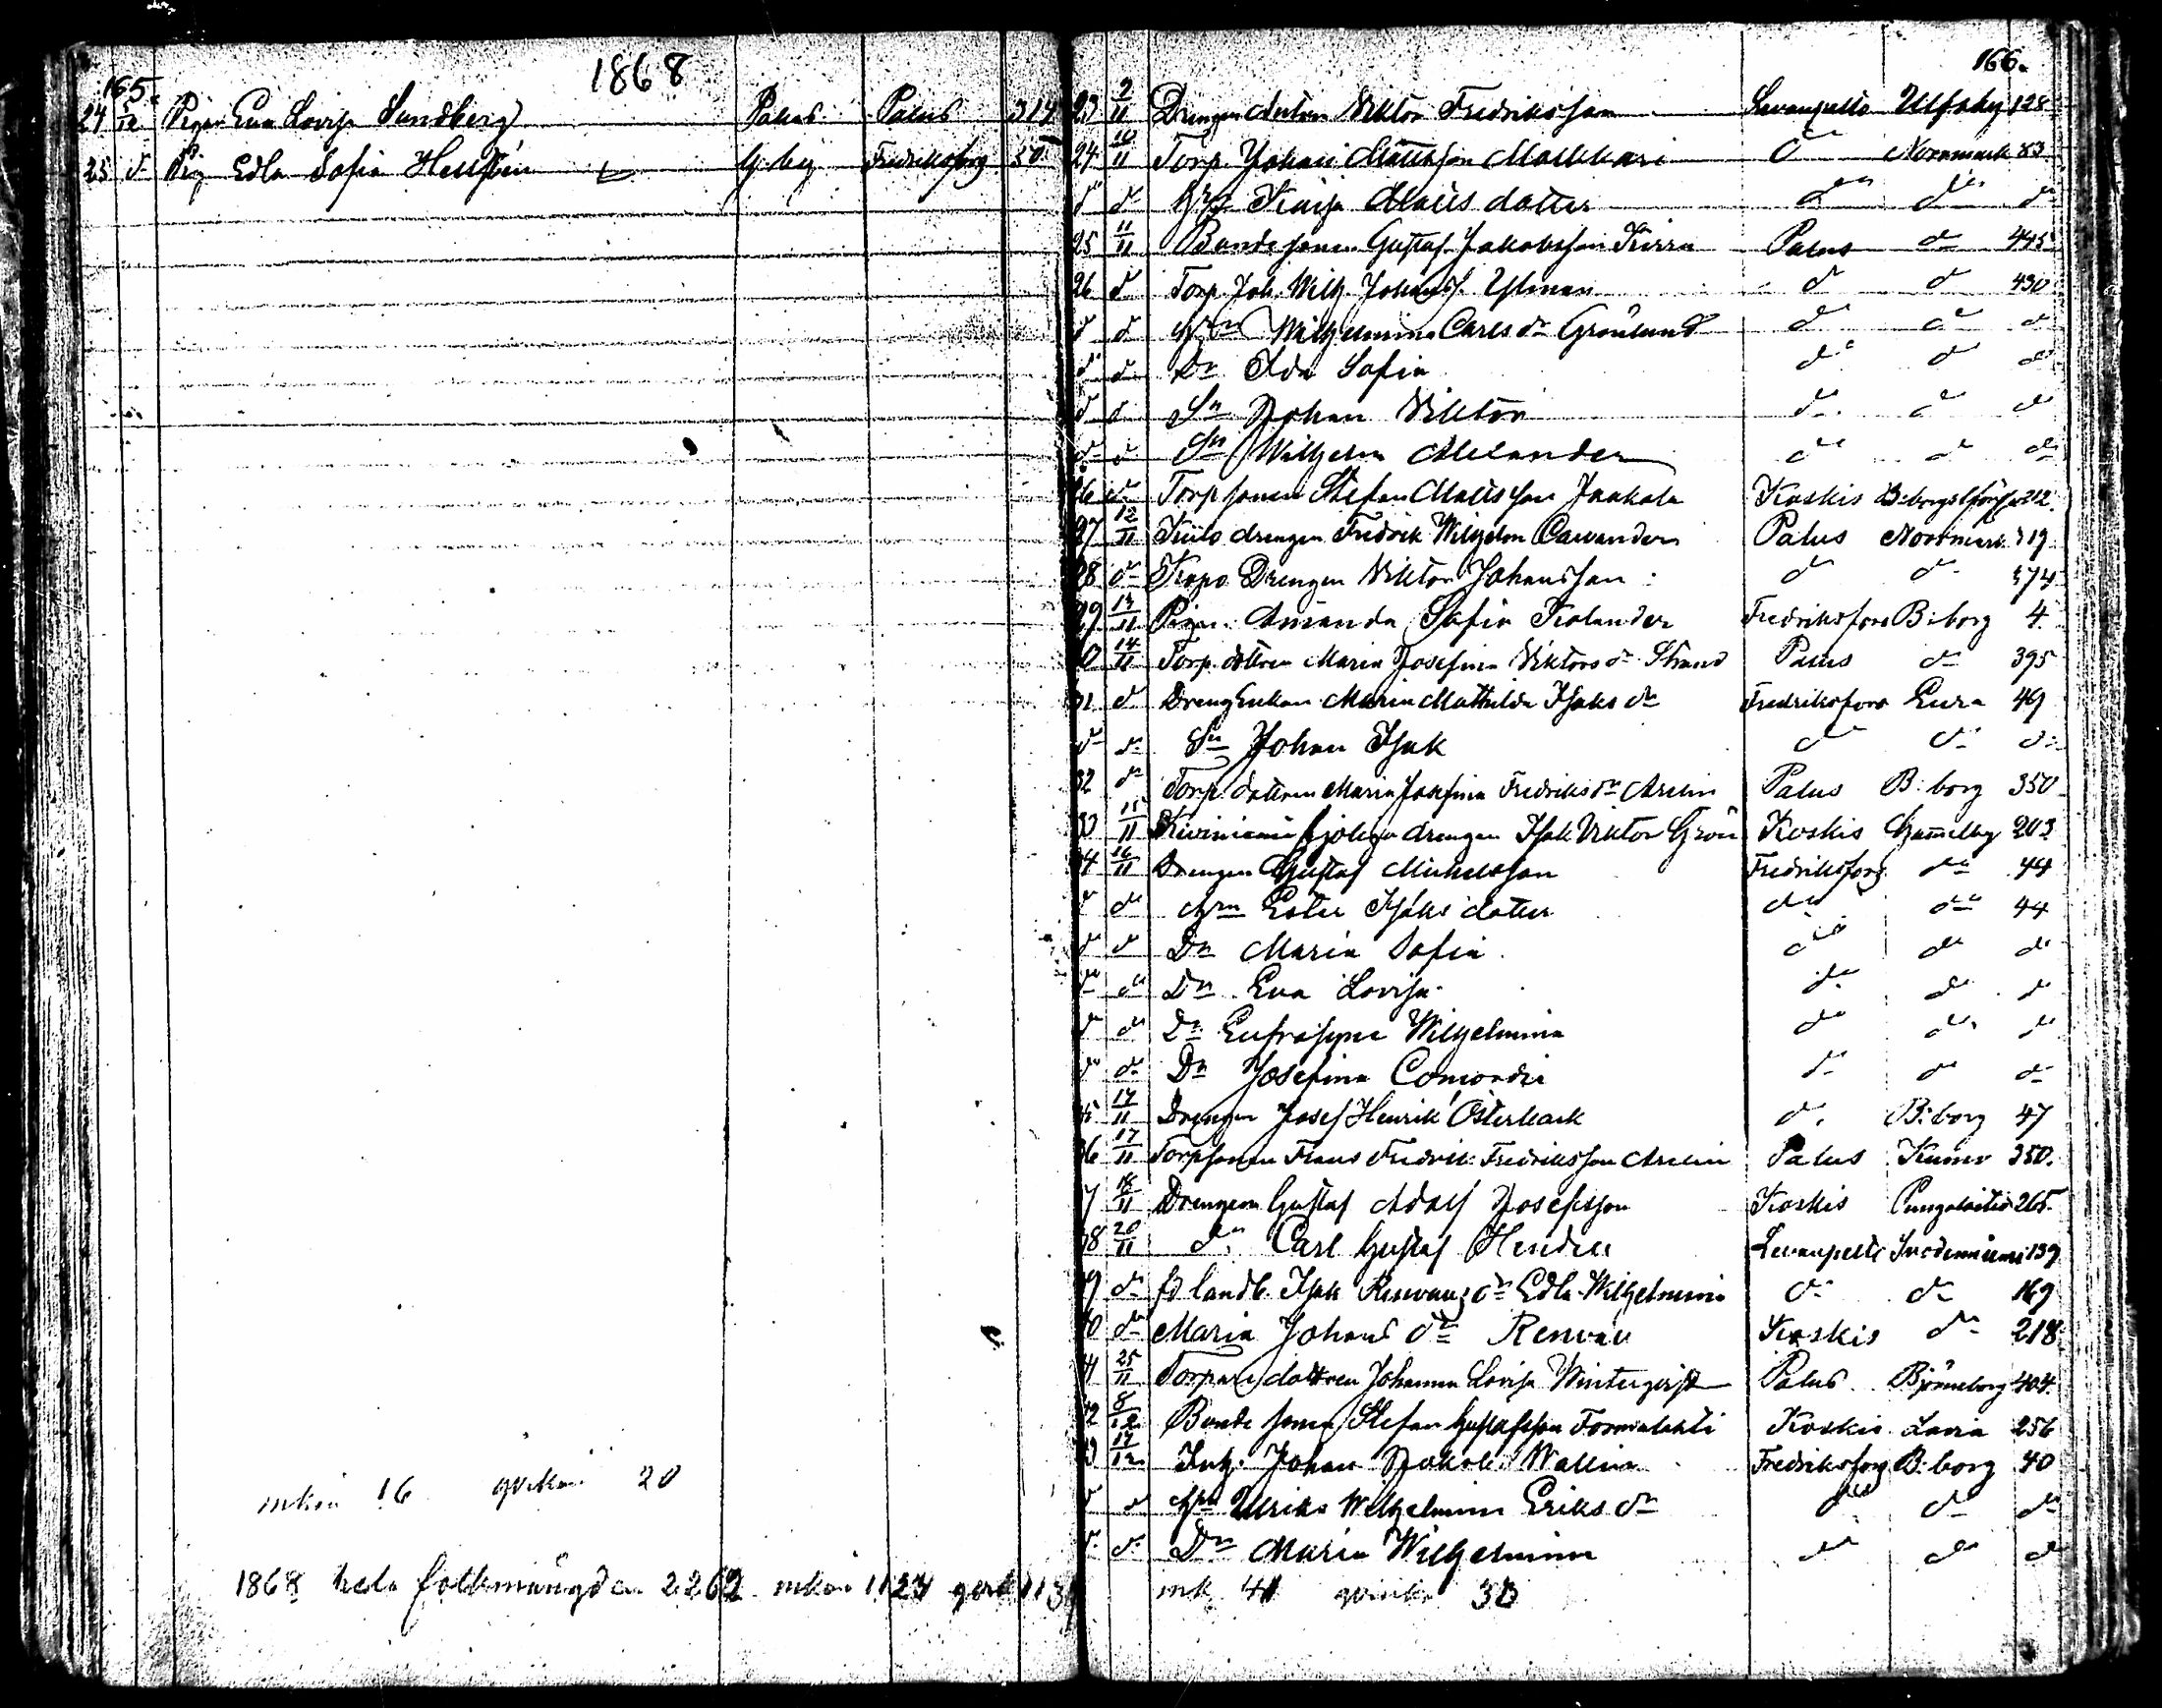 165.
1868
24 5/12 Pigan Eva Lovisa Sundberg Palus Palus 314
25 d Pig Edla Sofia Hellstén G:by Fredriksforg 50
mkön 16 qvinkön 20
1868 hela folkmängden 2262 mkön 1123 qvk
166.
23 2/11 Drengen Anton Viktor Fredriksson Levanpelto Ulfsby 128
24 10/11 Torp. Johan Mattsson d Norrmark 83
d d Hu Kaisa Matts dotter d dn dn
25 11/11 Bonde sonen Gustaf Jakobsson Palus dn 445
26 d Torp. Joh. Wilh. Johanss. d d 430
d d Hun Wilhelmina Carls dr Grönlund d dn d
d d Dn Ida Sofia dn d dn
d d Sn Johan Viktor dn dn d
dn d Sn Wilhelm Alexander dn dn dn
26 dn Torp sonen Stefan Matts son Jaakola Koskis B:borgs 212.
27 12/11 drengen Fredrik Wilhelm Cawander Palus Norrmark 319
28 dn Drengen Viktor Johansson d dn 374
29 13/11 Pigan Amanda Sofia Fredriksfors B:borg 4
0 14/11 Torp. dottren Maria Josefina Viktors dr Strand Palus dn 395
31 d Dreng Enkan Maria Mathilda Isaks dr Fredriksfors Eura 49
dn dn Sn Johan Isak dn dn dn
32 dn Torp. dottren Maria Josefina Fredriks dr Arelin Palus B:borg 350
33 15/11 drengen Isak Viktor Grön Koskis Gammelby 203
34 16/11 Drengen Gustaf Mickelsson Fredriksforg dn 44
d dn Hun Ester Isaks dotter dn dn 44
d d Dn Maria Sofia dn dn dn
dn dn Dn Eva Lovisa dn dn dn
dn dn Dn Eufrosyne Wilhelmina dn dn dn
dn dn Dn Josefina Concordia dn dn dn
35 17/11 Drengen Josef Henrik Österback dn B:borg 47
36 17/11 Torpsonen Frans Fredrik Fredriksson Arelin Palus Kumo 350.
7 18/11 Drengen Gustaf Adolf Josefsson Koskis Pungalaitio 265
38 20/11 dn Carl Gustaf Levanpelto Suodenniemi 139
39 dn landb. Isak dr Edla Wilhelmina dn dn 169
40 dn Maria Johans dr Renvall Koskis dn 218
41 25/11 Torpare dottren Johanna Lovisa Winterqvist Palus Björneborg 404
42 8/12 Bonde sonen Stefan Gustafsson Koskis Lavia 256
43 17/12 Inh. Johan Jakob Wallin Fredriksforg B:borg 40
d d Hun Ulrika Wilhelmina Eriks dr dn dn dn
dn dn Dn Maria Wilhelmina dn dn dn
mk 41 qvinkn 33